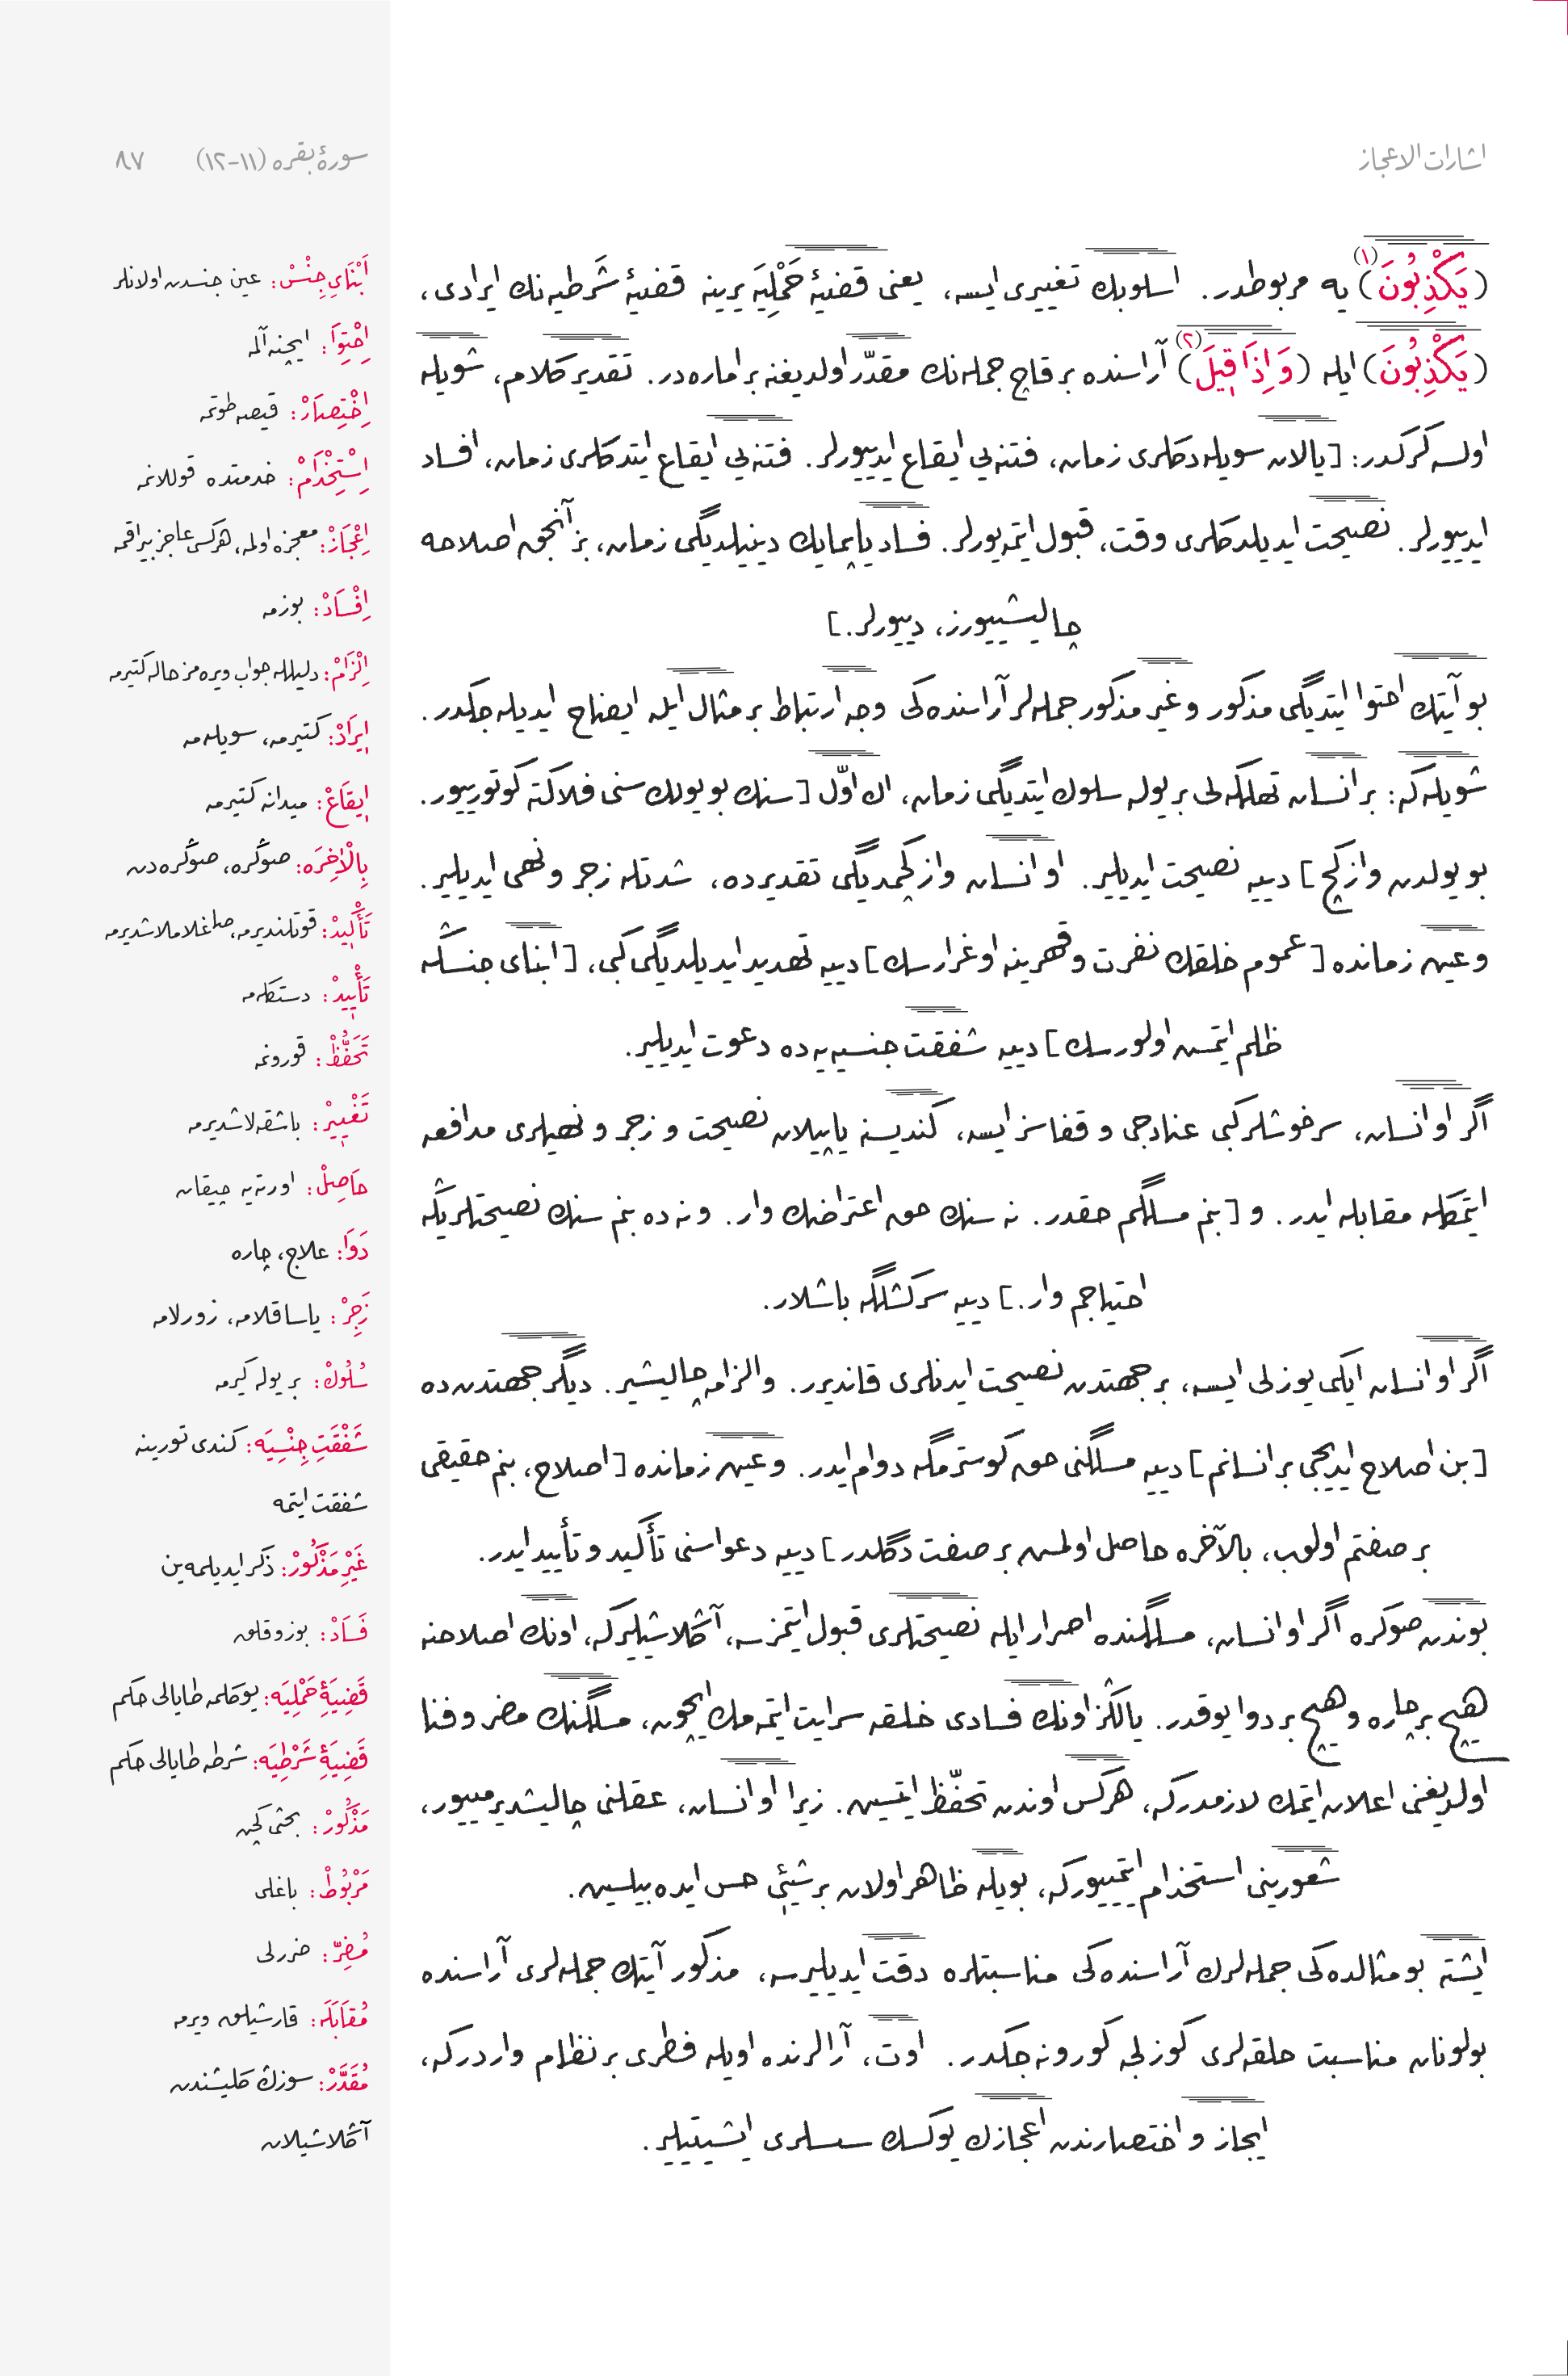 اشارات الاعجاز
سورۀ بقره (١١-١٢) ٨٧
(يَكْذِبُونَ)(١) يه مربوطدر. اسلوبك تغييرى ايسه، يعنى قضيۀ حَمْلِيَه يرينه قضيۀ شَرطيه‌نك ايرادى،
(يَكْذِبُونَ) ايله (وَاِذَا قٖيلَ)(٢) آراسنده برقاچ جمله‌نك مقدّر اولديغنه بر اماره‌در. تقدير كلام، شويله
اولسه كركدر: [يالان سويله‌دكلرى زمان، فتنه‌يى ايقاع ايدييورلر. فتنه‌يى ايقاع ايتدكلرى زمان، افساد
ايدييورلر. نصيحت ايديلدكلرى وقت، قبول ايتمه‌يورلر. فساد ياپمايك دينيلديگى زمان، بز آنجق اصلاحه
چاليشييورز، دييورلر.]
بو آيتك احتوا ايتديگى مذكور و غير مذكور جمله‌لر آراسنده‌كى وجه ارتباط بر مثال ايله ايضاح ايديله‌جكدر.
شويله‌كه: بر انسان تهلكه‌لى بر يوله سلوك ايتديگى زمان، اك اوّل [سنك بو يولك سنى فلاكته كوتورييور.
بو يولدن وازكچ] دييه نصيحت ايديلير. او انسان وازكچمديگى تقديرده، شدتله زجر و نهى ايديلير.
و عين زمانده [عموم خلقك نفرت و قهرينه اوغرارسك] دييه تهديد ايديلديگى كبى، [ابناى جنسڭه
ظلم ايتمش اولورسك] دييه شفقت جنسيه‌يه ده دعوت ايديلير.
اگر او انسان، سرخوشلر كبى عنادجى و قفاسز ايسه، كنديسنه ياپيلان نصيحت و زجر و نهيلرى مدافعه
ايتمكله مقابله ايدر. و [بنم مسلگم حقدر. نه سنك حق اعتراضك وار. و نه ده بنم سنك نصيحتلريڭه
احتياجم وار.] دييه سركشلگه باشلار.
اگر او انسان ايكى يوزلى ايسه، بر جهتدن نصيحت ايدنلرى قانديرر. و الزامه چاليشير. ديگر جهتدن ده
[بن اصلاح ايديجى بر انسانم] دييه مسلگنى حق كوسترمگه دوام ايدر. و عين زمانده [اصلاح، بنم حقيقى
بر صفتم اولوب، بالآخره حاصل اولمش بر صفت دگلدر] دييه دعواسنى تأكيد و تأييد ايدر.
بوندن صوكره اگر او انسان، مسلگنده اصرار ايله نصيحتلرى قبول ايتمزسه، آڭلاشيليركه، اونك اصلاحنه
هيچ بر چاره و هيچ بر دوا يوقدر. يالڭز اونك فسادى خلقه سرايت ايتمه‌مك ايچون، مسلگنك مضر و فنا
اولديغنى اعلان ايتمك لازمدركه، هركس اوندن تحفّظ ايتسين. زيرا او انسان، عقلنى چاليشديرمييور،
شعورينى استخدام ايتمييوركه، بويله ظاهر اولان بر شيئى حس ايده‌بيلسين.
ايشته بو مثالده‌كى جمله‌لرك آراسنده‌كى مناسبتلره دقت ايديليرسه، مذكور آيتك جمله‌لرى آراسنده
بولونان مناسبت حلقه‌لرى كوزلجه كورونه‌جكدر. اوت، آرالرنده اويله فطرى بر نظام واردركه،
ايجاز و اختصارندن اعجازك يوكسك سسلرى ايشيتيلير.
اَبْنَايِ جِنْسْ: عين جنسدن اولانلر
اِحْتِوَا: ايچنه آلمه
اِخْتِصَارْ: قيصه طوتمه
اِسْتِخْدَامْ: خدمتده قوللانمه
اِعْجَازْ: معجزه اولمه، هركسى عاجز بيراقمه
اِفْسَادْ: بوزمه
اِلْزَامْ: دليلله جواب ويره‌مز حاله كتيرمه
اٖيرَادْ: كتيرمه، سويله‌مه
اٖيقَاعْ: ميدانه كتيرمه
بِالْاٰخِرَه: صوڭره، صوڭره‌دن
تَأْكٖيدْ: قوتلنديرمه، صاغلاملاشديرمه
تَأْيٖيدْ: دستكله‌مه
تَحَفُّظْ: قورونمه
تَغْيٖيرْ: باشقه‌لاشديرمه
حَاصِلْ: اورته‌يه چيقان
دَوَا: علاج، چاره
زَجِرْ: ياساقلامه، زورلامه
سُلُوكْ: بر يوله كيرمه
شَفْقَتِ جِنْسِيَه: كندى تورينه
شفقت ايتمه
غَيْرِ مَذْكُورْ: ذكر ايديلمه‌ين
فَسَادْ: بوزوقلق
قَضِيَۀِ حَمْلِيَه: يوكلمه طايالى حكم
قَضِيَۀِ شَرْطِيَه: شرطه طايالى حكم
مَذْكُورْ: بحثى كچن
مَرْبُوطْ: باغلى
مُضِرّْ: ضررلى
مُقَابَلَه: قارشيلق ويرمه
مُقَدَّرْ: سوزڭ كليشندن
آڭلاشيلان